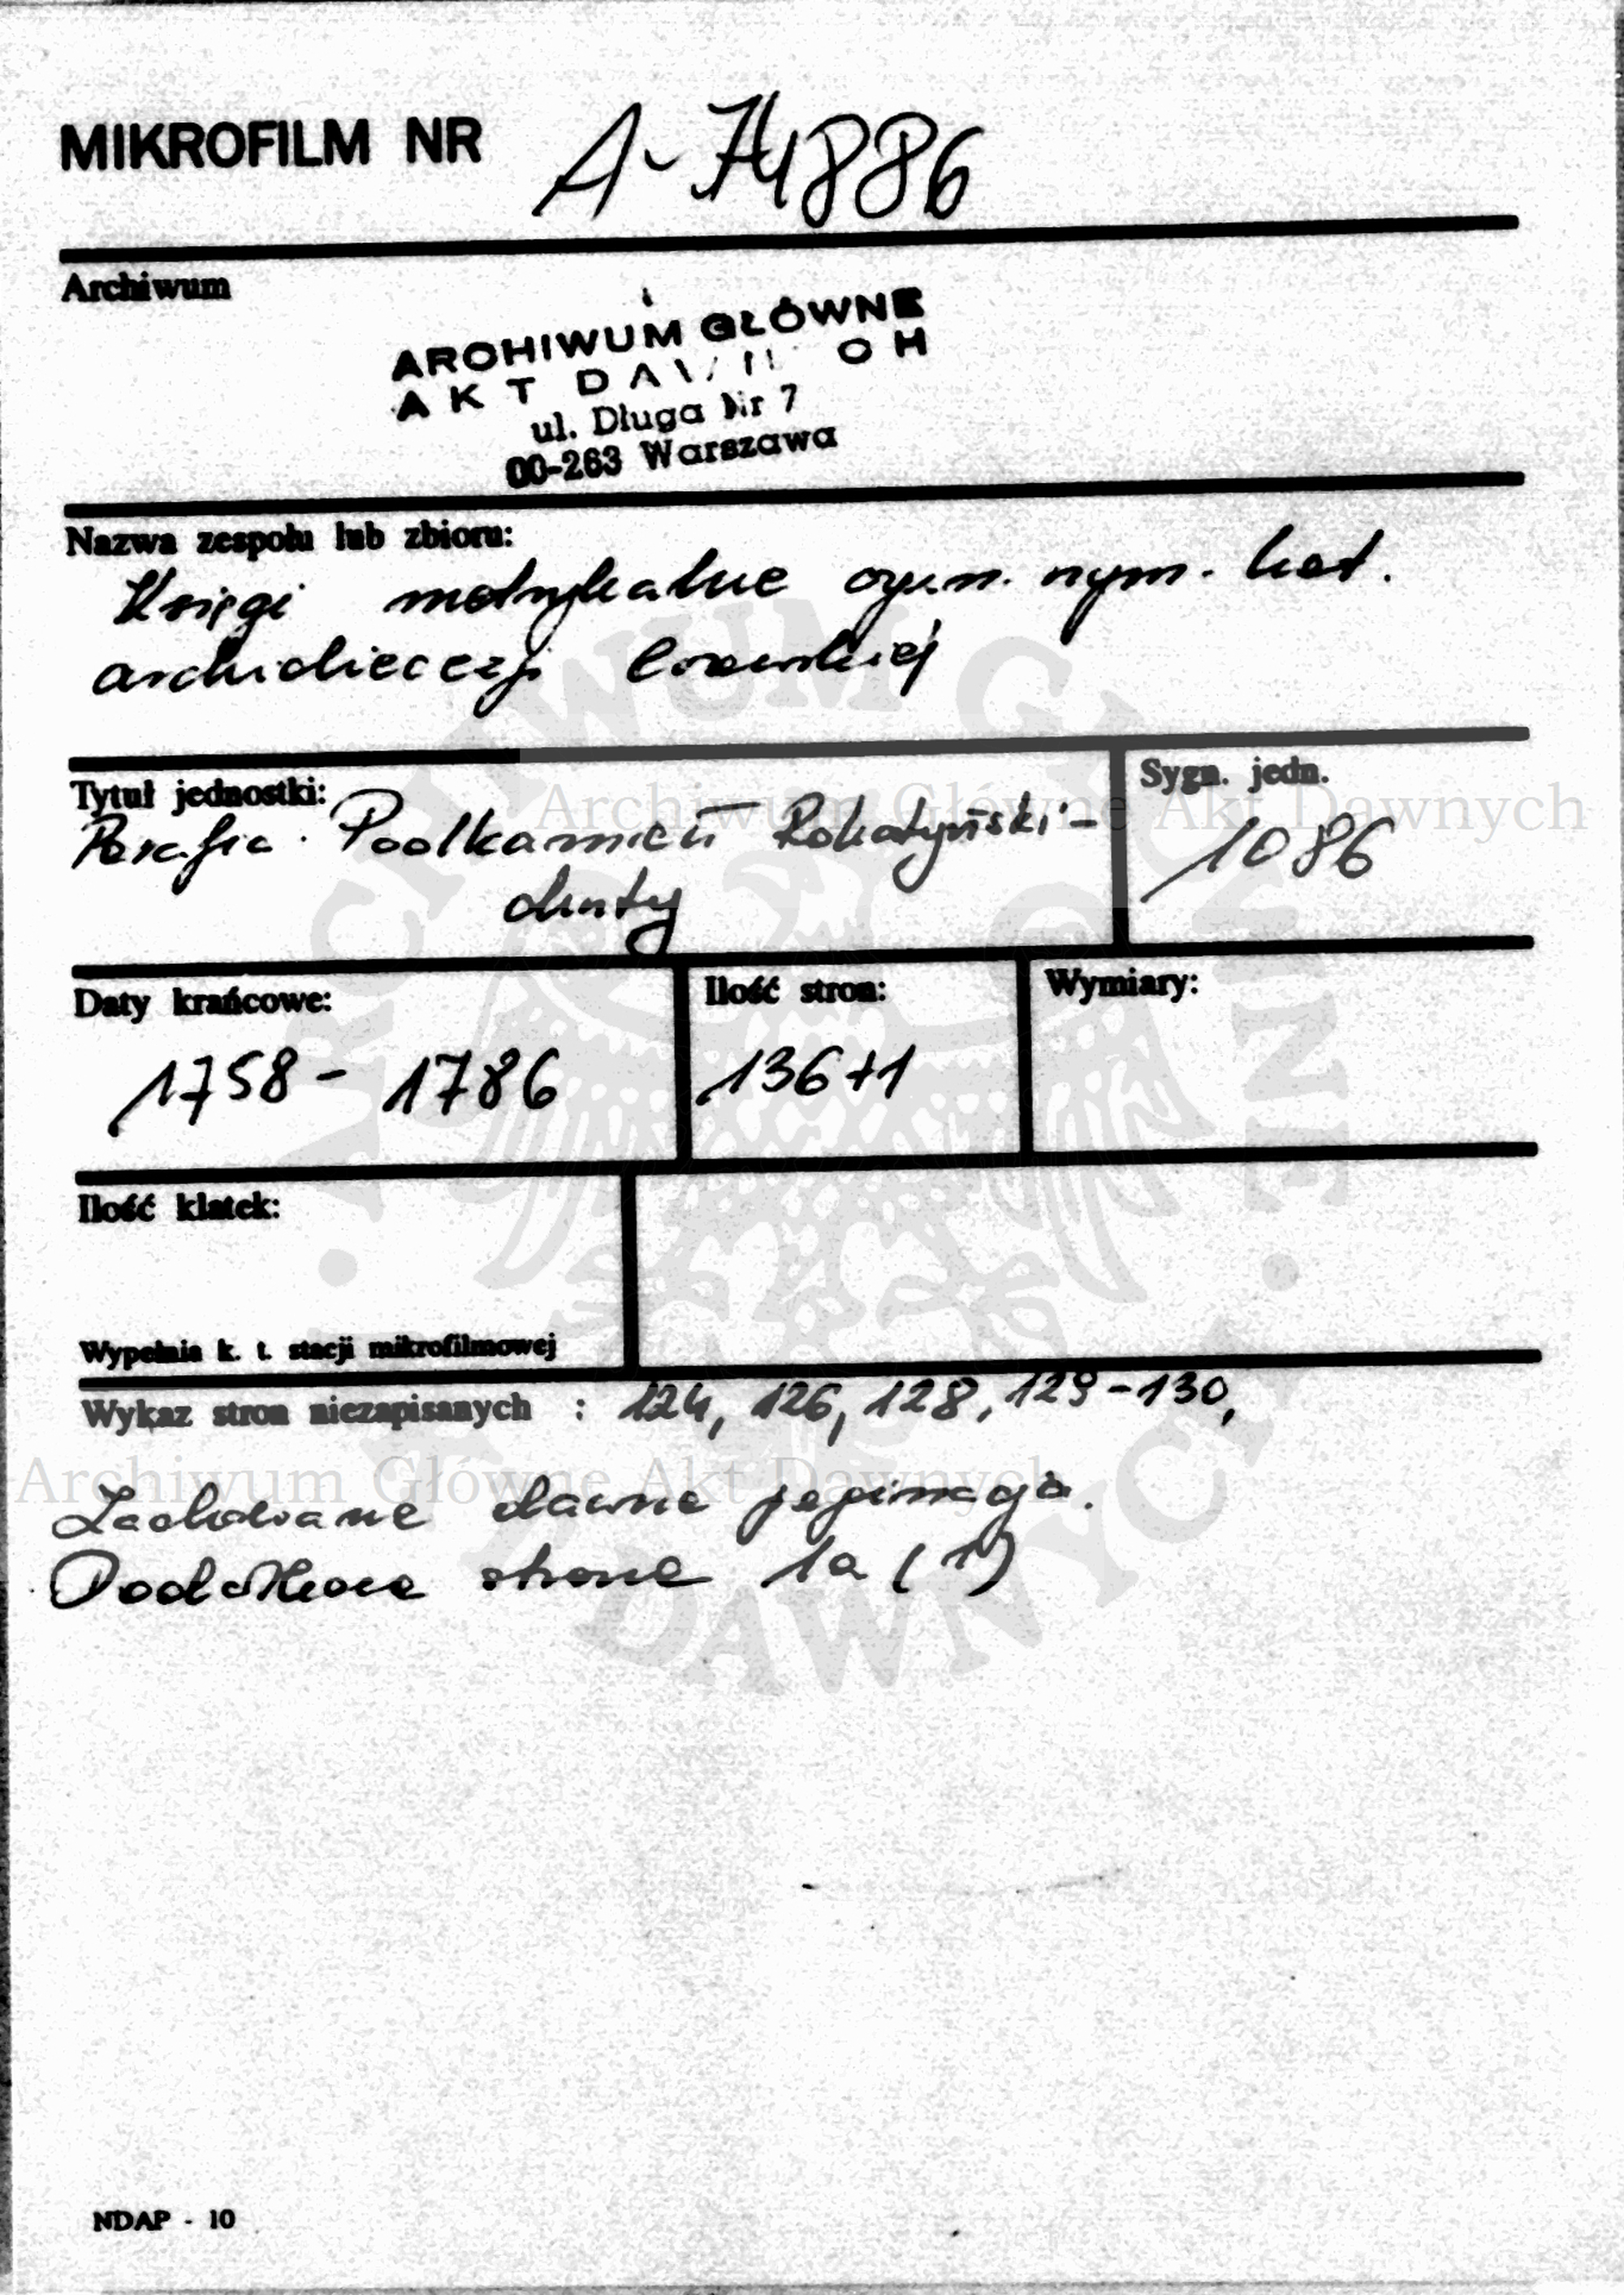 MIKROFILM NR A-74886
Archiwum
ARCHIWUM GŁÓWNE
AKT DAWNYCH
ul. Długa Nr 7
00-263 Warszawa
Nazwa zespołu lub zbioru:
Księgi metrykalne rzym. kat.
archidiecezji lwowskiej
Tytuł jednostki:
Parafia Podkamień Rohatyński-
chrzty
Sygn. jedn.
1086
Daty krańcowe:
1758 - 1786
Ilość stron:
136+1
Wymiary:
Ilość klatek:
Wypełnia k. t. stacji mikrofilmowej
Wykaz stron niezapisanych : 124, 126, 128, 129-130,
Zachowane dawna paginacja.
Dodatkowa strona 1a (1)
NDAP - 10
Archiwum Główne Akt Dawnych
Archiwum Główne Akt Dawnych
ARCHIWUM GŁÓWNE AKT DAWNYCH